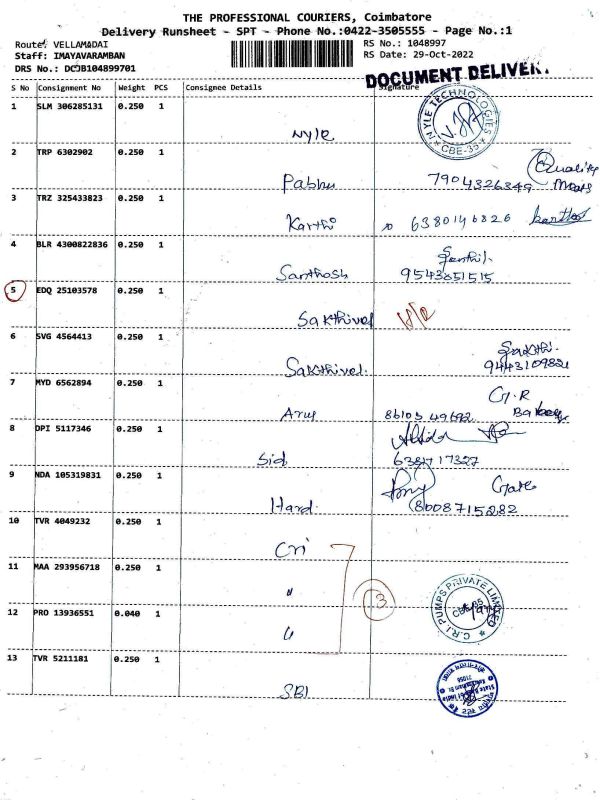 THE PROFESSIONAL COURIERS, Coimbatore
Delivery Runsheet - SPT - Phone No.:0422-3505555 - Page No.:1
Route: VELLAMADAI
Staff: IMAYAVARAMBAN
DRS No.: DCJB104899701
RS No.: 1048997
RS Date: 29-Oct-2022
DOCUMENT DELIVER
S No Consignment No Weight PCS Consignee Details Signature
1 SLM 306285131 0.250 1
Nyle
NYLE TECHNOLOGIES
CBE-35
2 TRP 6302902 0.250 1
Pabhu 7904326349 Quality
3 TRZ 325433823 0.250 1
Karthi 6380146826
4 BLR 4300822836 0.250 1
Santhosh 9543851515
5 EDQ 25103578 0.250 1
Sakthivel
6 SVG 4564413 0.250 1
Sakthivel Sakthi
9443109821
7 MYD 6562894 0.250 1
G.R
Arus 86103 49692 Bakery
8 DPI 5117346 0.250 1
Sid 6381717327
9 NDA 105319831 0.250 1
Hard 8008715282
10 TVR 4049232 0.250 1
Cri
11 MAA 293956718 0.250 1
"
3
12 PRO 13936551 0.040 1
"
C.R.I. PUMPS PRIVATE LIMITED
CBE-35
13 TVR 5211181 0.250 1
SBI
State Bank of India